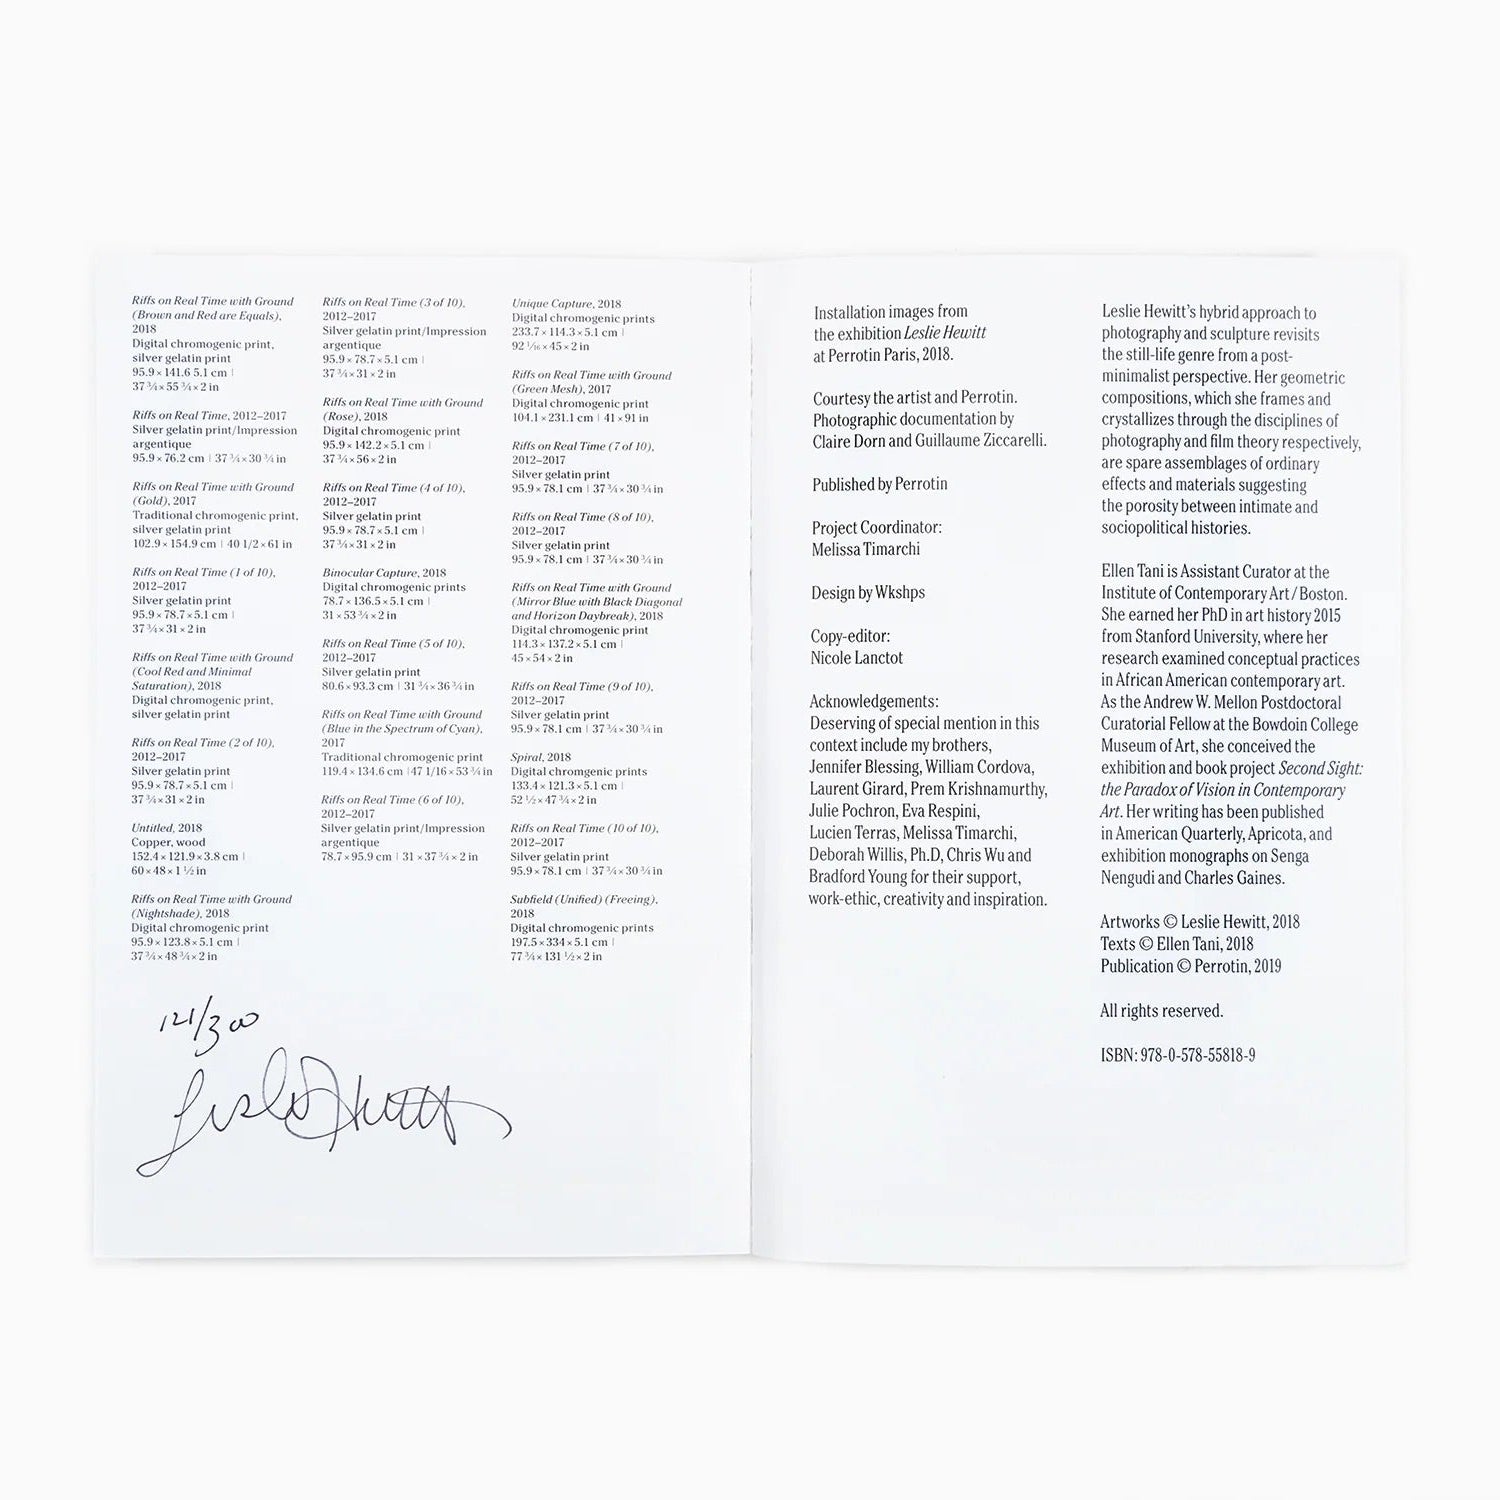 Riffs on Real Time with Ground
(Brown and Red are Equals),
2018
Digital chromogenic print,
silver gelatin print
95.9 × 141.6 5.1 cm |
37 ¾ × 55 ¾ × 2 in
Riffs on Real Time, 2012–2017
Silver gelatin print/Impression
argentique
95.9 × 76.2 cm | 37 ¾ × 30 ¾ in
Riffs on Real Time with Ground
(Gold), 2017
Traditional chromogenic print,
silver gelatin print
102.9 × 154.9 cm | 40 1/2 × 61 in
Riffs on Real Time (1 of 10),
2012–2017
Silver gelatin print
95.9 × 78.7 × 5.1 cm |
37 ¾ × 31 × 2 in
Riffs on Real Time with Ground
(Cool Red and Minimal
Saturation), 2018
Digital chromogenic print,
silver gelatin print
Riffs on Real Time (2 of 10),
2012–2017
Silver gelatin print
95.9 × 78.7 × 5.1 cm |
37 ¾ × 31 × 2 in
Untitled, 2018
Copper, wood
152.4 × 121.9 × 3.8 cm |
60 × 48 × 1 ½ in
Riffs on Real Time with Ground
(Nightshade), 2018
Digital chromogenic print
95.9 × 123.8 × 5.1 cm |
37 ¾ × 48 ¾ × 2 in
Riffs on Real Time (3 of 10),
2012–2017
Silver gelatin print/Impression
argentique
95.9 × 78.7 × 5.1 cm |
37 ¾ × 31 × 2 in
Riffs on Real Time with Ground
(Rose), 2018
Digital chromogenic print
95.9 × 142.2 × 5.1 cm |
37 ¾ × 56 × 2 in
Riffs on Real Time (4 of 10),
2012–2017
Silver gelatin print
95.9 × 78.7 × 5.1 cm |
37 ¾ × 31 × 2 in
Binocular Capture, 2018
Digital chromogenic prints
78.7 × 136.5 × 5.1 cm |
31 × 53 ¾ × 2 in
Riffs on Real Time (5 of 10),
2012–2017
Silver gelatin print
80.6 × 93.3 cm | 31 ¾ × 36 ¾ in
Riffs on Real Time with Ground
(Blue in the Spectrum of Cyan),
2017
Traditional chromogenic print
119.4 × 134.6 cm | 47 1/16 × 53 ¾ in
Riffs on Real Time (6 of 10),
2012–2017
Silver gelatin print/Impression
argentique
78.7 × 95.9 cm | 31 × 37 ¾ × 2 in
Unique Capture, 2018
Digital chromogenic prints
233.7 × 114.3 × 5.1 cm |
92 1/16 × 45 × 2 in
Riffs on Real Time with Ground
(Green Mesh), 2017
Digital chromogenic print
104.1 × 231.1 cm | 41 × 91 in
Riffs on Real Time (7 of 10),
2012–2017
Silver gelatin print
95.9 × 78.1 cm | 37 ¾ × 30 ¾ in
Riffs on Real Time (8 of 10),
2012–2017
Silver gelatin print
95.9 × 78.1 cm | 37 ¾ × 30 ¾ in
Riffs on Real Time with Ground
(Mirror Blue with Black Diagonal
and Horizon Daybreak), 2018
Digital chromogenic print
114.3 × 137.2 × 5.1 cm |
45 × 54 × 2 in
Riffs on Real Time (9 of 10),
2012–2017
Silver gelatin print
95.9 × 78.1 cm | 37 ¾ × 30 ¾ in
Spiral, 2018
Digital chromgenic prints
133.4 × 121.3 × 5.1 cm |
52 ½ × 47 ¾ × 2 in
Riffs on Real Time (10 of 10),
2012–2017
Silver gelatin print
95.9 × 78.1 cm | 37 ¾ × 30 ¾ in
Subfield (Unified) (Freeing),
2018
Digital chromogenic prints
197.5 × 334 × 5.1 cm |
77 ¾ × 131 ½ × 2 in
121/300
Leslie Hewitt
Installation images from
the exhibition Leslie Hewitt
at Perrotin Paris, 2018.
Courtesy the artist and Perrotin.
Photographic documentation by
Claire Dorn and Guillaume Ziccarelli.
Published by Perrotin
Project Coordinator:
Melissa Timarchi
Design by Wkshps
Copy-editor:
Nicole Lanctot
Acknowledgements:
Deserving of special mention in this
context include my brothers,
Jennifer Blessing, William Cordova,
Laurent Girard, Prem Krishnamurthy,
Julie Pochron, Eva Respini,
Lucien Terras, Melissa Timarchi,
Deborah Willis, Ph.D, Chris Wu and
Bradford Young for their support,
work-ethic, creativity and inspiration.
Leslie Hewitt's hybrid approach to
photography and sculpture revisits
the still-life genre from a post-
minimalist perspective. Her geometric
compositions, which she frames and
crystallizes through the disciplines of
photography and film theory respectively,
are spare assemblages of ordinary
effects and materials suggesting
the porosity between intimate and
sociopolitical histories.
Ellen Tani is Assistant Curator at the
Institute of Contemporary Art / Boston.
She earned her PhD in art history 2015
from Stanford University, where her
research examined conceptual practices
in African American contemporary art.
As the Andrew W. Mellon Postdoctoral
Curatorial Fellow at the Bowdoin College
Museum of Art, she conceived the
exhibition and book project Second Sight:
the Paradox of Vision in Contemporary
Art. Her writing has been published
in American Quarterly, Apricota, and
exhibition monographs on Senga
Nengudi and Charles Gaines.
Artworks © Leslie Hewitt, 2018
Texts © Ellen Tani, 2018
Publication © Perrotin, 2019
All rights reserved.
ISBN: 978-0-578-55818-9